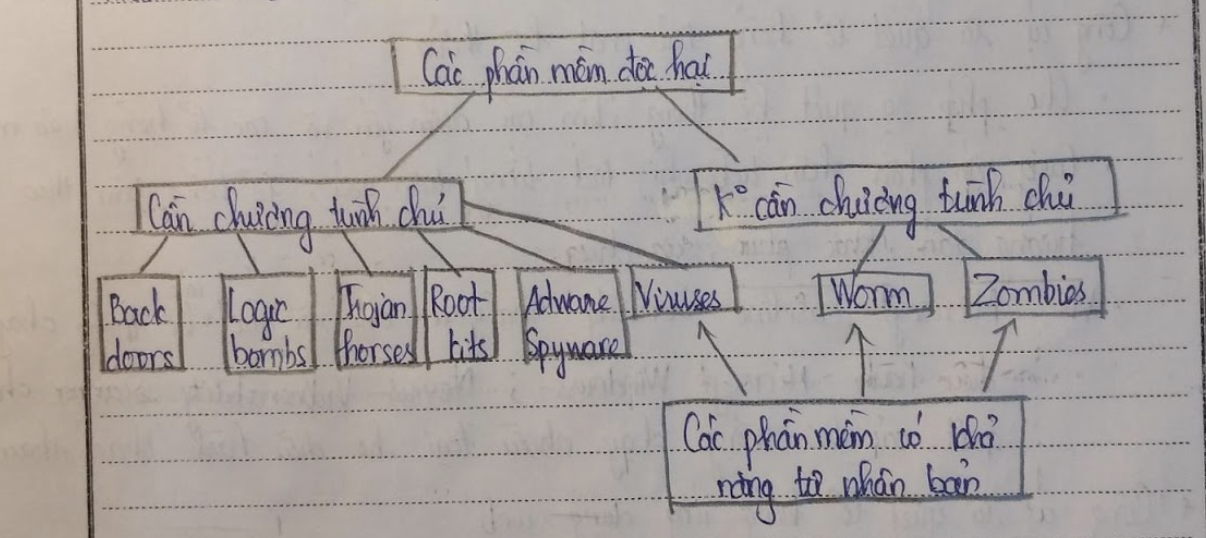 Các phần mềm độc hại
Cần chương trình chủ
K° cần chương trình chủ
Back
doors
Logic
bombs
Trojan
horses
Root
kits
Adware
Spyware
Viruses
Worm
Zombies
Các phần mềm có khả
năng tự nhân bản